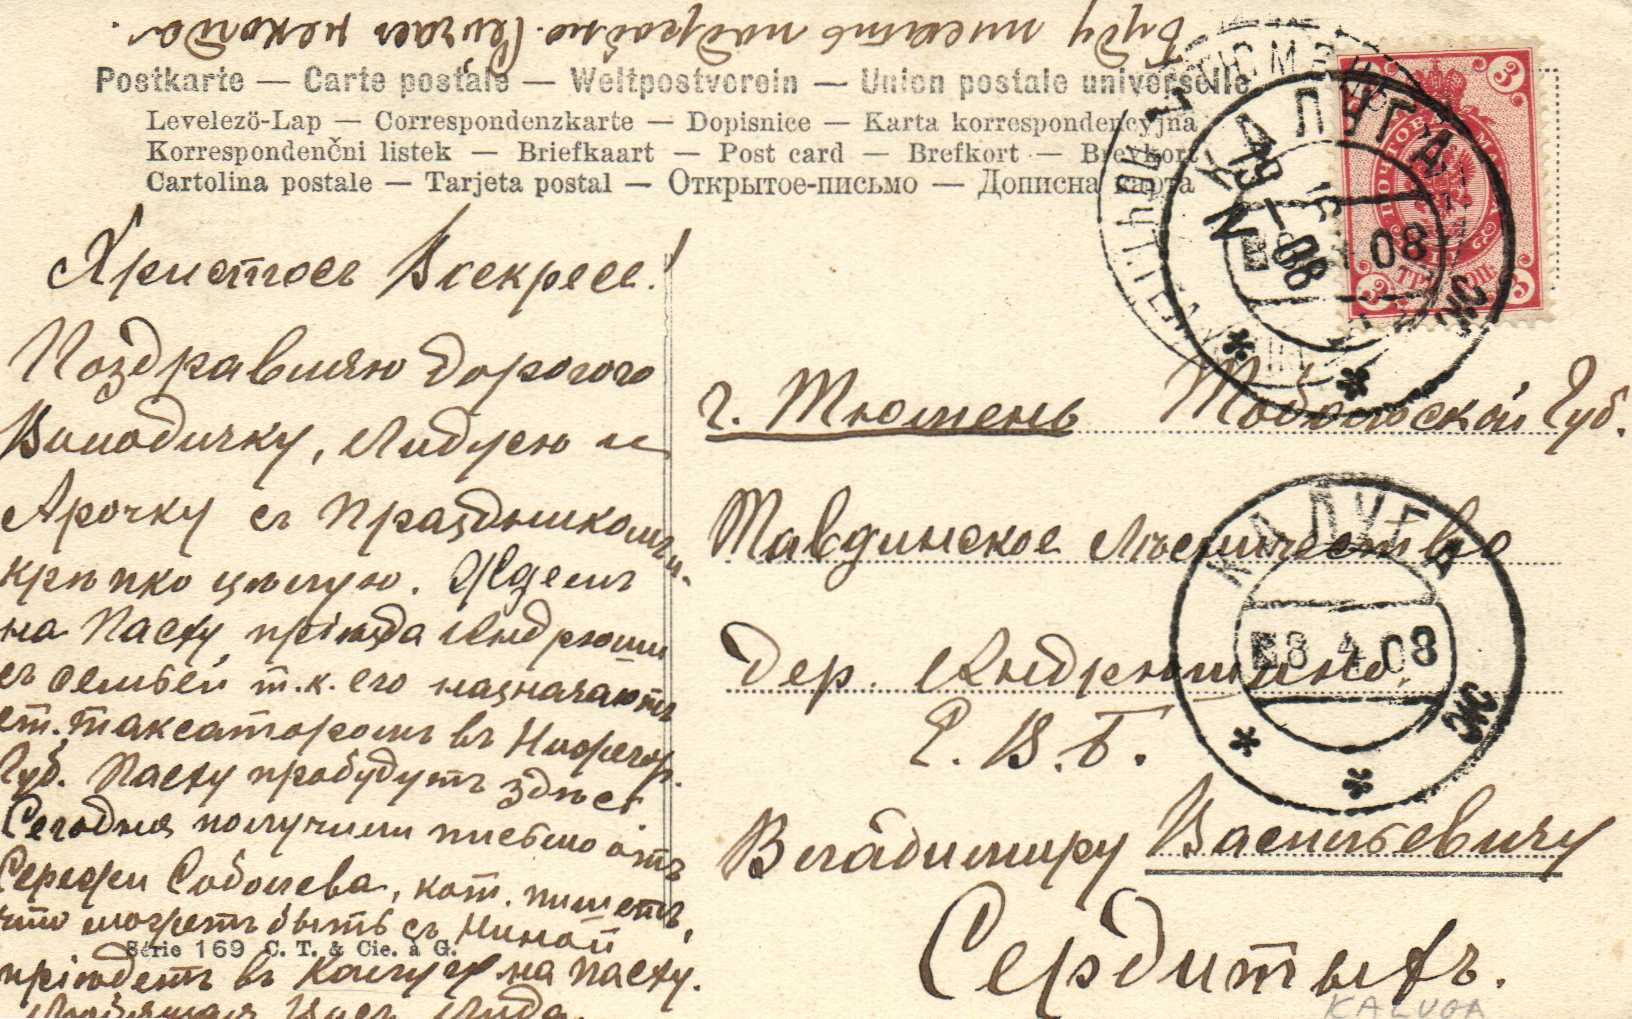 Буду писать подробно. Сейчас некогда.
Postkarte — Carte postale — Weltpostverein — Union postale universelle
Levelezö-Lap — Correspondenzkarte — Dopisnice — Karta korrespondencyjna
Korrespondenčni listek — Briefkaart — Post card — Brefkort — Brevkort
Cartolina postale — Tarjeta postal — Открытое-письмо — Дописна карта
Христосъ Вкскресе!
Поздравляю дорогого
Володичку, Лидусю и
Арочку съ Праздникомъ и
крѣпко цѣлую. Ждемъ
на Пасху пріѣзда Андрюши
съ семьей т.к. его назначаютъ
ст. таксаторомъ въ Нижегор.
Губ. Пасху пробудутъ здѣсь
Сегодня получили письмо отъ
Сережи Соболева, кот. пишетъ,
что можетъ быть съ Ниной
пріѣдетъ въ Калугу на пасху.
Любящая Васъ Лида.
Série 169 C. T. & Cie. à G.
г. Тюмень Тобольской Губ.
Тавдинское Лѣсничество
дер. Андрюшино.
Е. В. Б.
Владимиру Васильевичу
Сердитыхъ.
КАЛУГА
08
КАЛУГА
8 4 08
ПОЧТОВАЯ МАРКА
ТРИ КОП.
3
3
3
KALUGA